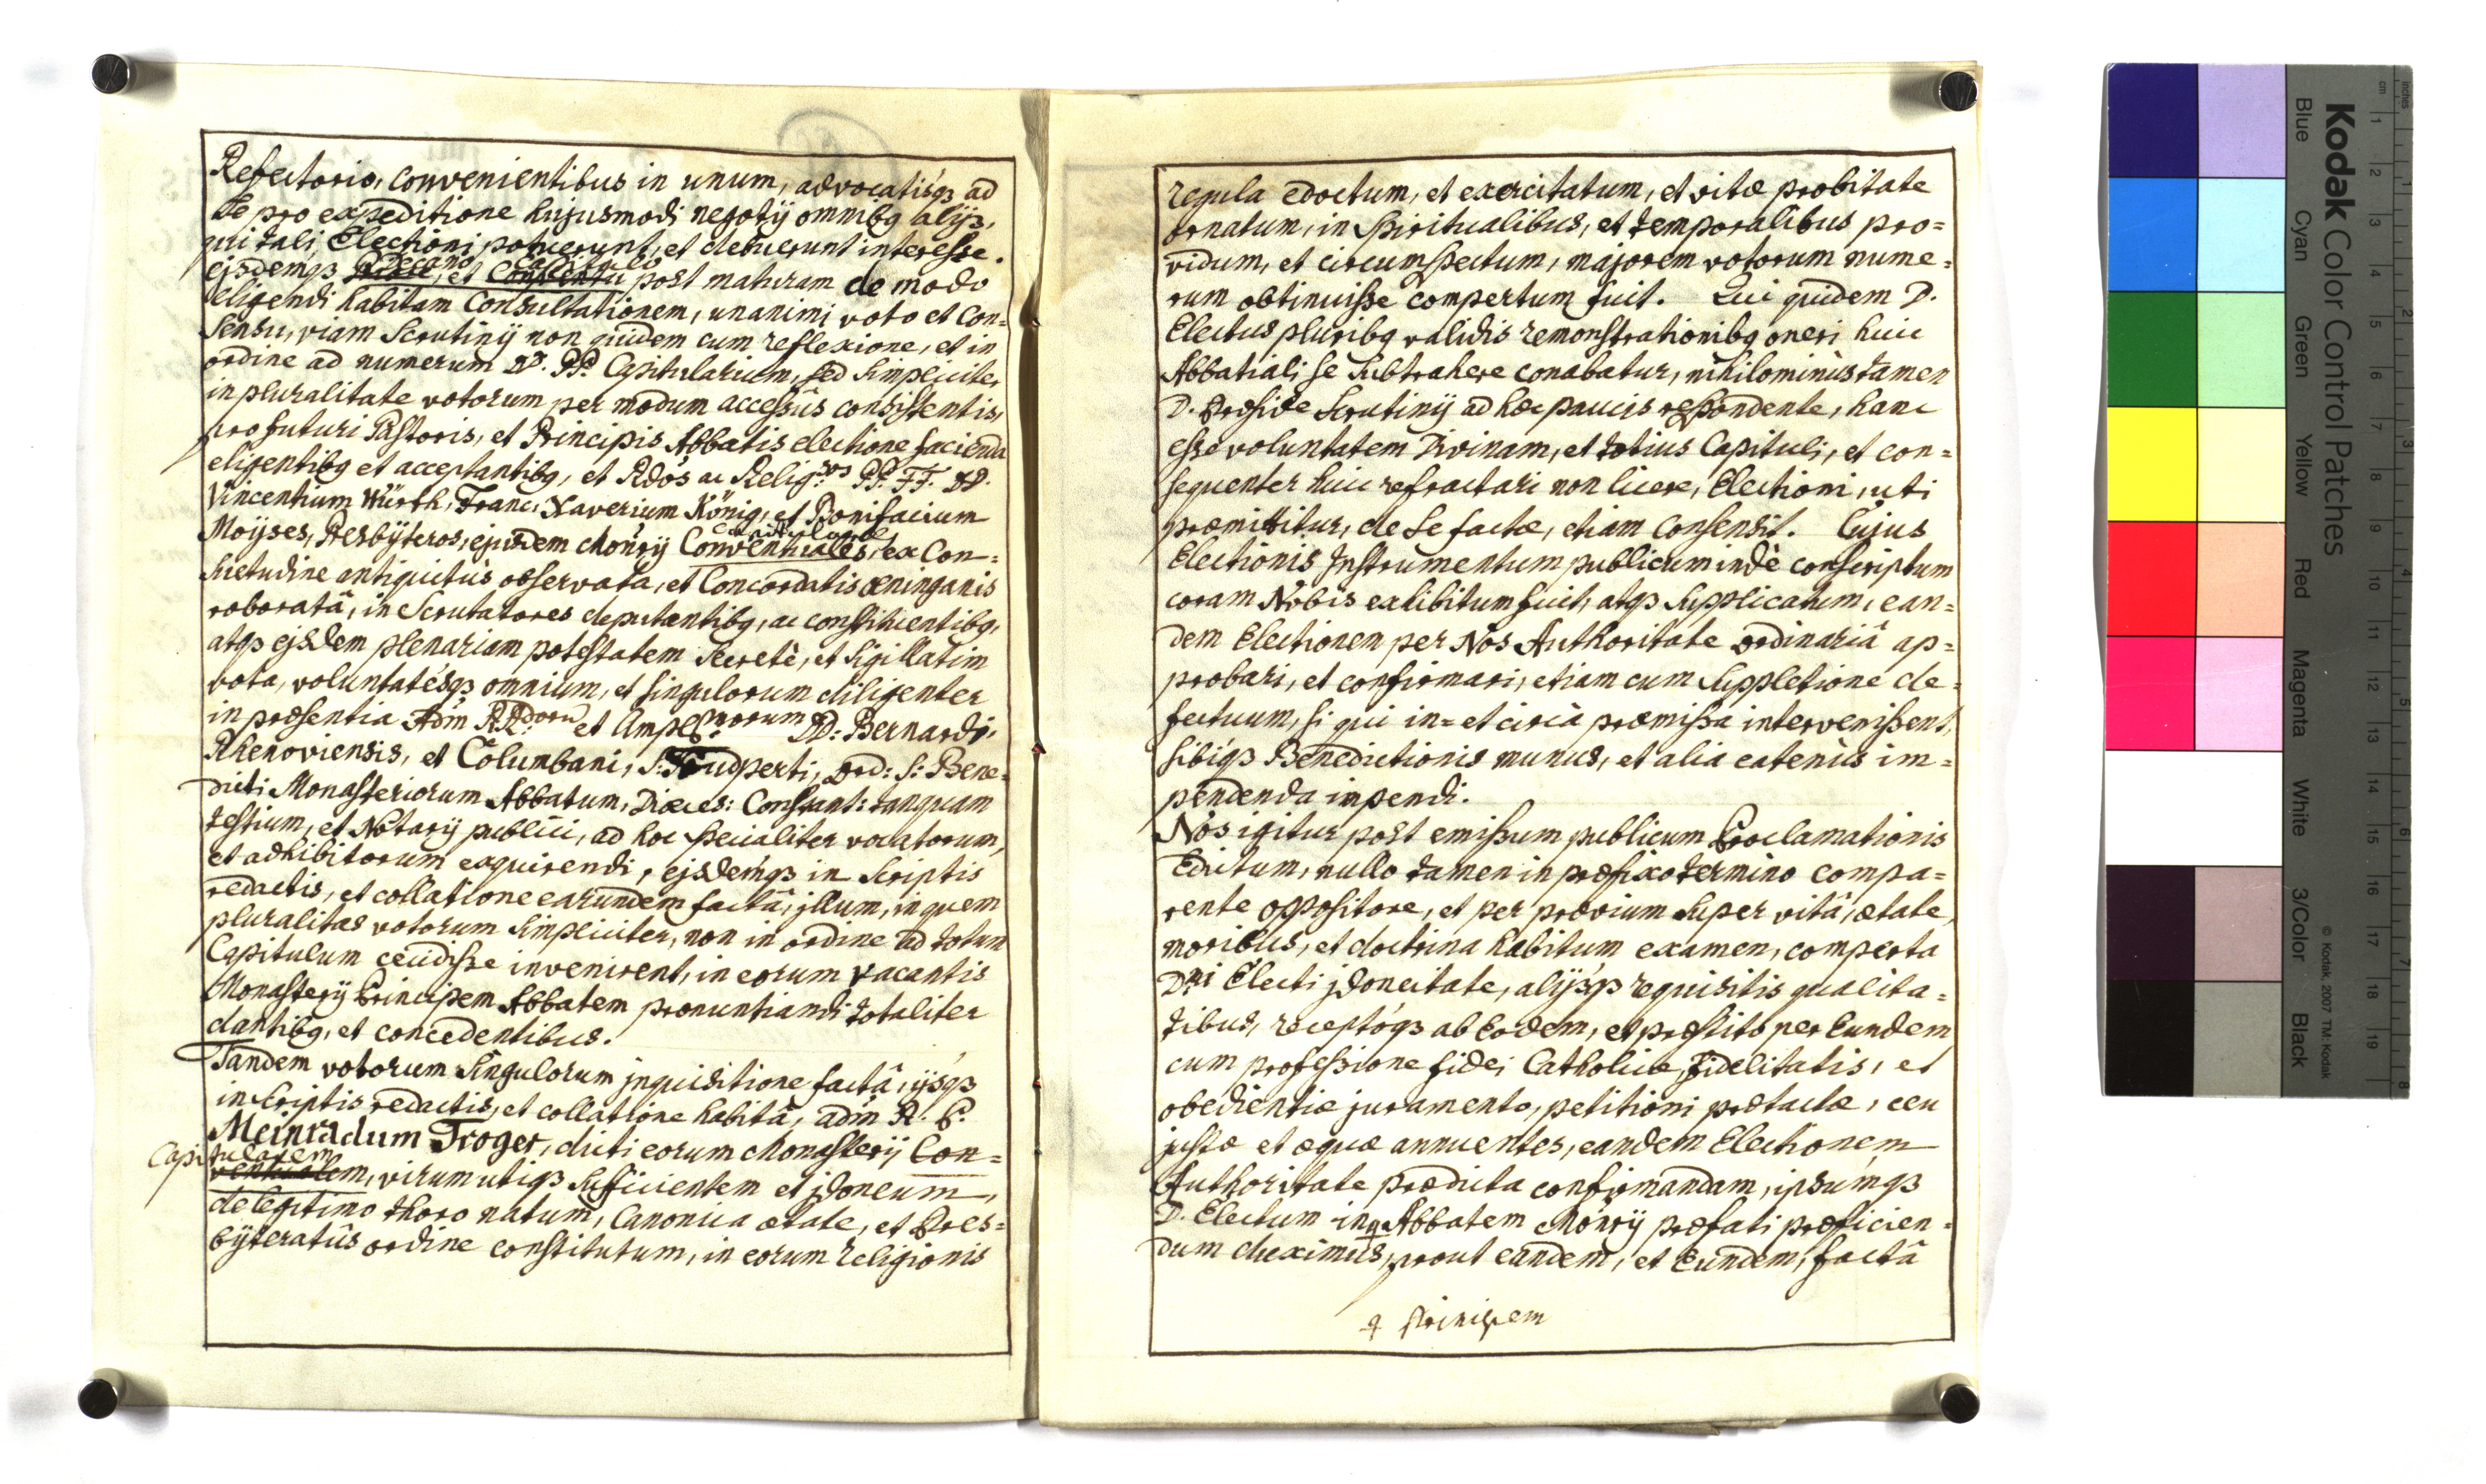 Refectorio, convenientibus in unum, advocatisq3 ad
se pro expeditione hujusmodi negotij omnibq alijs,
qui tali Electioni potuerunt, et debuerunt interesse.
Decano Capitulo
ejsdemq3 et Conventu post maturam de modo
eligendi habitam Consultationem, unanimi voto et Con=
sensu, viam Scrutinij non quidem cum reflexione, et in
ordine ad numerum D. PP. Capitularium, sed simpliciter
in pluralitate votorum per modum accessûs consistentis,
pro futuri Pastoris, et Principis Abbatis electione facienda
eligentibq et acceptantibq, et Rdos ac Relig:sos PP. FF. DD.
Vincentium Würth, Franc. Xaverium König, et Bonifacium
Moÿses, Presbÿteros, ejusdem Monrÿ Conventuales, ex Con=
suetudine antiquitùs observata, et Concordatis œninganis
roboratâ, in Scrutatores deputantibq, ac constituentibq,
atq3 ejsdem plenariam potestatem secretè, et sigillatim
vota, voluntatésq3 omnium, et singulorum diligenter
in præsentia Adm RR:dorū et Ampl:morum DD: Bernardi,
Rhenoviensis, et Columbani, S: Trudperti, Ord: S: Bene=
dicti Monasteriorum Abbatum, Diœces: Constant: tanquam
testium, et Notarij publici, ad hoc specialiter vocatorum,
et adhibitorum exquirendi, ejsdemq3 in Scriptis
redactis, et collatione earundem factâ, jllum, in quem
pluralitas votorum simpliciter, non in ordine ad totum
Capitulum cecidisse invenirent, in eorum vacantis
Monasterij Principem Abbatem pronuntiandi totaliter
dantibq, et concedentibus.
Tandem votorum singulorum jnquisitione factâ, ijsq3
in scriptis redactis, et collatione habitâ, adm R. P.
Meinradum Troger, dicti eorum Monasterij Con=
Capitularem
ventualem, virum utiq3 sufficientem et jdoneum,
de legitimo thoro natum, Canonica ætate, et Pres=
bÿteratûs ordine constitutum, in eorum religionis
regula edoctum, et exercitatum, et vitæ probitate
ornatum, in Spiritualibus, et temporalibus pro=
vidum, et circumspectum, majorem votorum nume=
rum obtinuisse compertum fuit. Qui quidem D.
Electus pluribq validis remonstrationibq oneri huic
Abbatiali se subtrahere conabatur, nihilominùs tamen
D. Præside Scrutinij ad hæc paucis respondente, hanc
esse voluntatem Divinam, et totius Capituli, et con=
sequenter huic refractari non licere, Electioni, uti
præmittitur, de se factæ, etiam Consensit. Cujus
Electionis Instrumentum publicum indè conscriptum
coram Nobis exhibitum fuit, atq3 supplicatum, ean=
dem Electionem per Nos Authoritate Ordinariâ ap=
probari, et confirmari, etiam cum suppletione de=
fectuum, si qui in= et circà præmissa intervenissent,
sibiq3 Benedictionis munus, et alia eatenùs im=
pendenda inpendi.
Nos igitur post emissum publicum Proclamationis
Edictum, nullo tamen in præfixo termino compa=
rente oppositore, et per prævium super vitâ, ætate,
moribus, et doctrina habitum examen, comperta
Dni Electi jdoneitate, alijsq3 requisitis qualita=
tibus, receptoq3 ab Eodem, et præstito per Eundem
cum professione fidei Catholicæ, fidelitatis, et
obedientiæ juramento, petitioni prætactæ, ceu
justæ et æquæ annuentes, eandem Electionem
Authoritate prædicta confirmandam, ipsumq3
D. Electum in ⚲ Abbatem Monrij præfati præficien=
dum duximus, prout eandem, et Eundem, factâ
⚲ Principem
Kodak Color Control Patches
Blue Cyan Green Yellow Red Magenta White 3/Color Black
© Kodak, 2007 TM: Kodak
inches
cm
1 2 3 4 5 6 7 8 9 10 11 12 13 14 15 16 17 18 19
1 2 3 4 5 6 7 8